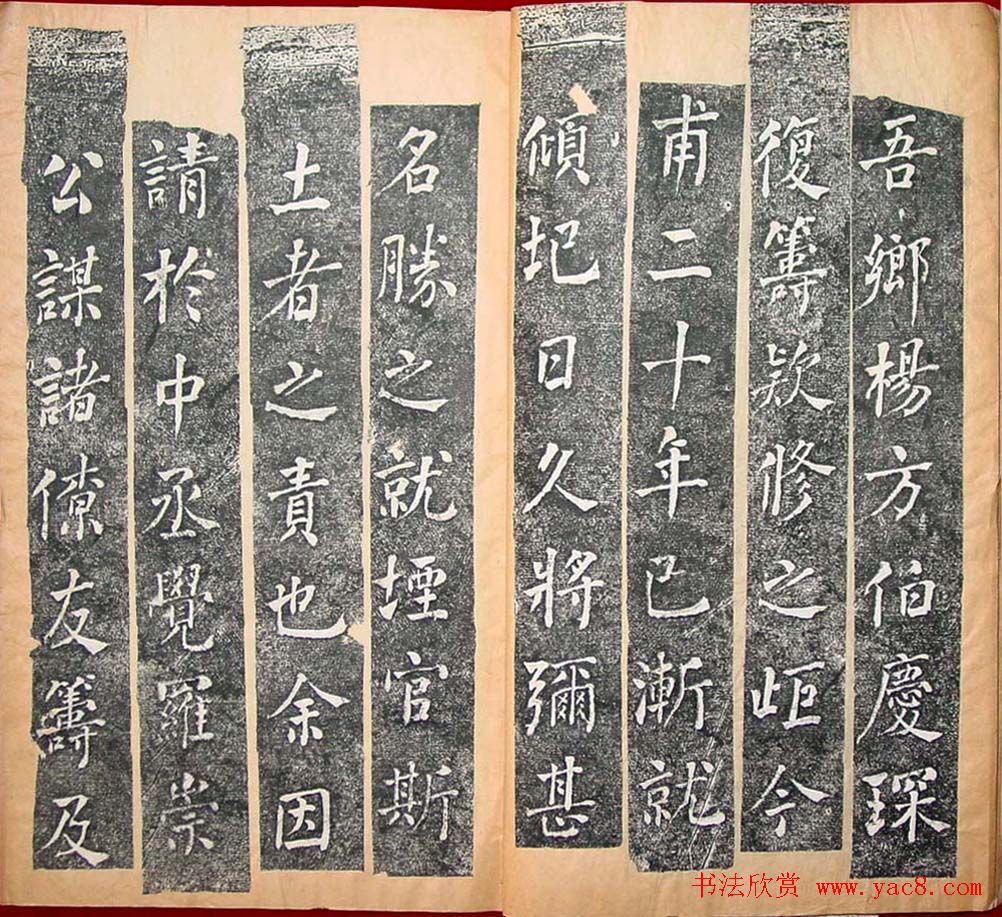 吾鄉楊方伯慶琛
復籌欵修之歫今
甫二十年已漸就
傾圯日久將彌甚
名勝之就堙官斯
土者之責也余因
請於中丞覺羅崇
公謀諸僚友籌及
书法欣赏 www.yac8.com